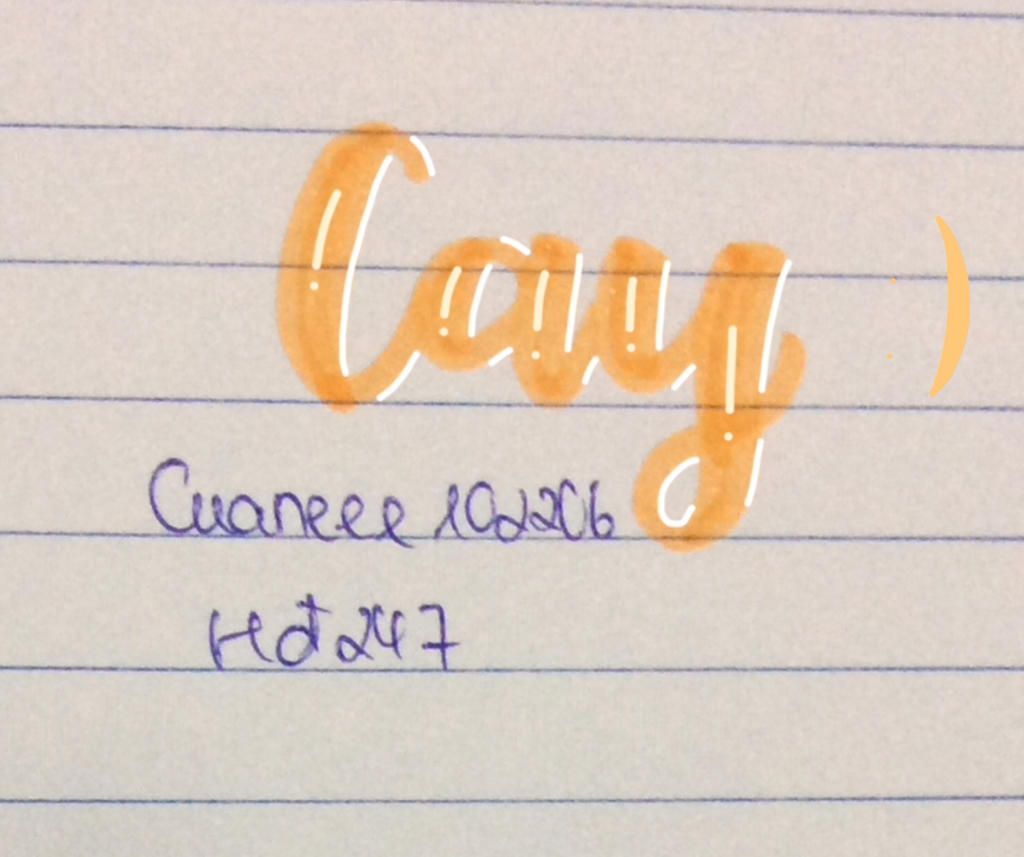 Cauy :)
Cuaneee102206
Hdt247